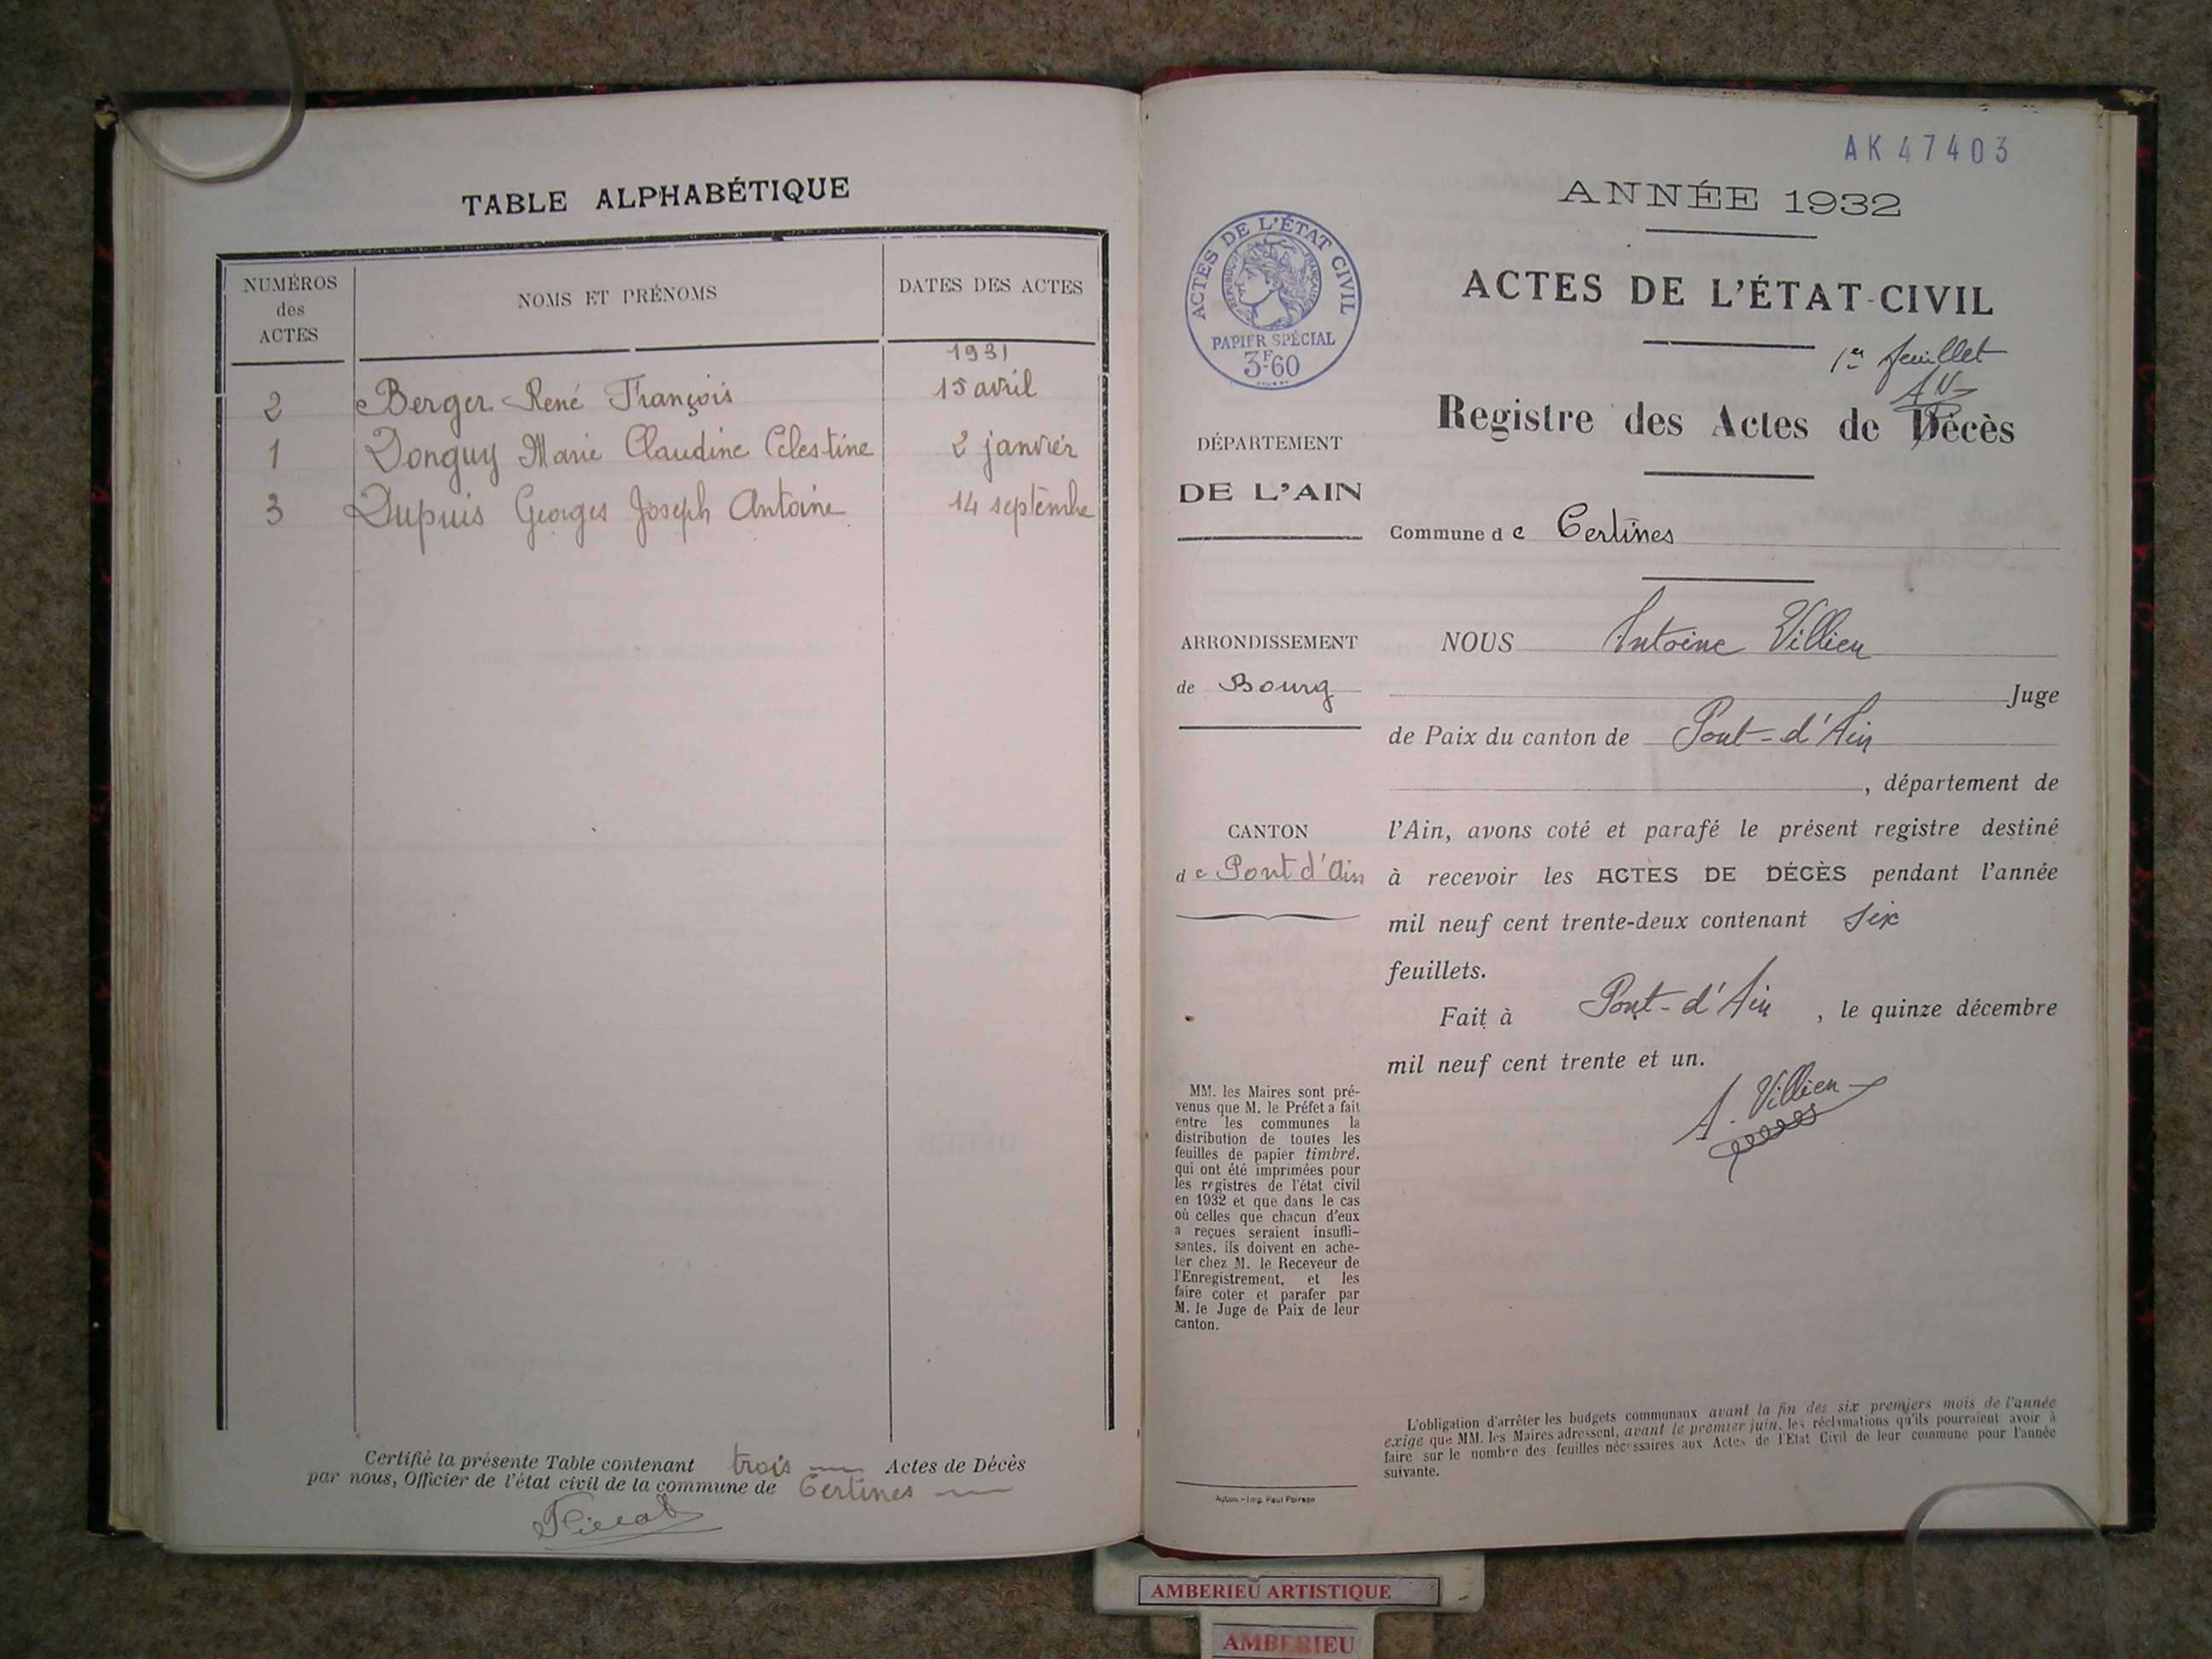 TABLE ALPHABÉTIQUE
NUMÉROS
des
ACTES
NOMS ET PRÉNOMS
DATES DES ACTES
1931
2 Berger René François 15 avril
1 Donguy Marie Claudine Célestine 2 janvier
3 Dupuis Georges Joseph Antoine 14 septembre
Certifié la présente Table contenant trois Actes de Décès
par nous, Officier de l'état civil de la commune de Certines
AK 47403
ANNÉE 1932
ACTES DE L'ÉTAT CIVIL
RÉPUBLIQUE FRANÇAISE
PAPIER SPÉCIAL
3F60
ACTES DE L'ÉTAT-CIVIL
1er feuillet
AV
Registre des Actes de Décès
DÉPARTEMENT
DE L'AIN
Commune de Certines
ARRONDISSEMENT
de Bourg
CANTON
de Pont d'Ain
NOUS Antoine Villien
Juge
de Paix du canton de Pont-d'Ain
, département de
l'Ain, avons coté et parafé le présent registre destiné
à recevoir les ACTES DE DÉCÈS pendant l'année
mil neuf cent trente-deux contenant six
feuillets.
Fait à Pont-d'Ain , le quinze décembre
mil neuf cent trente et un.
A. Villien
MM. les Maires sont pré-
venus que M. le Préfet a fait
entre les communes la
distribution de toutes les
feuilles de papier timbré,
qui ont été imprimées pour
les registres de l'état civil
en 1932 et que dans le cas
où celles que chacun d'eux
a reçues seraient insuffi-
santes, ils doivent en ache-
ter chez M. le Receveur de
l'Enregistrement, et les
faire coter et parafer par
M. le Juge de Paix de leur
canton.
L'obligation d'arrêter les budgets communaux avant la fin des six premiers mois de l'année
exige que MM. les Maires adressent, avant le premier juin, les réclamations qu'ils pourraient avoir à
faire sur le nombre des feuilles nécessaires aux Actes de l'Etat Civil de leur commune pour l'année
suivante.
Imp. Paul
AMBERIEU ARTISTIQUE
AMBERIEU